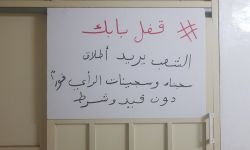 # قفل بابك
الشعب يريد أطلاق
سجناء وسجينات الرأي فوراً
دون قيد وشرط